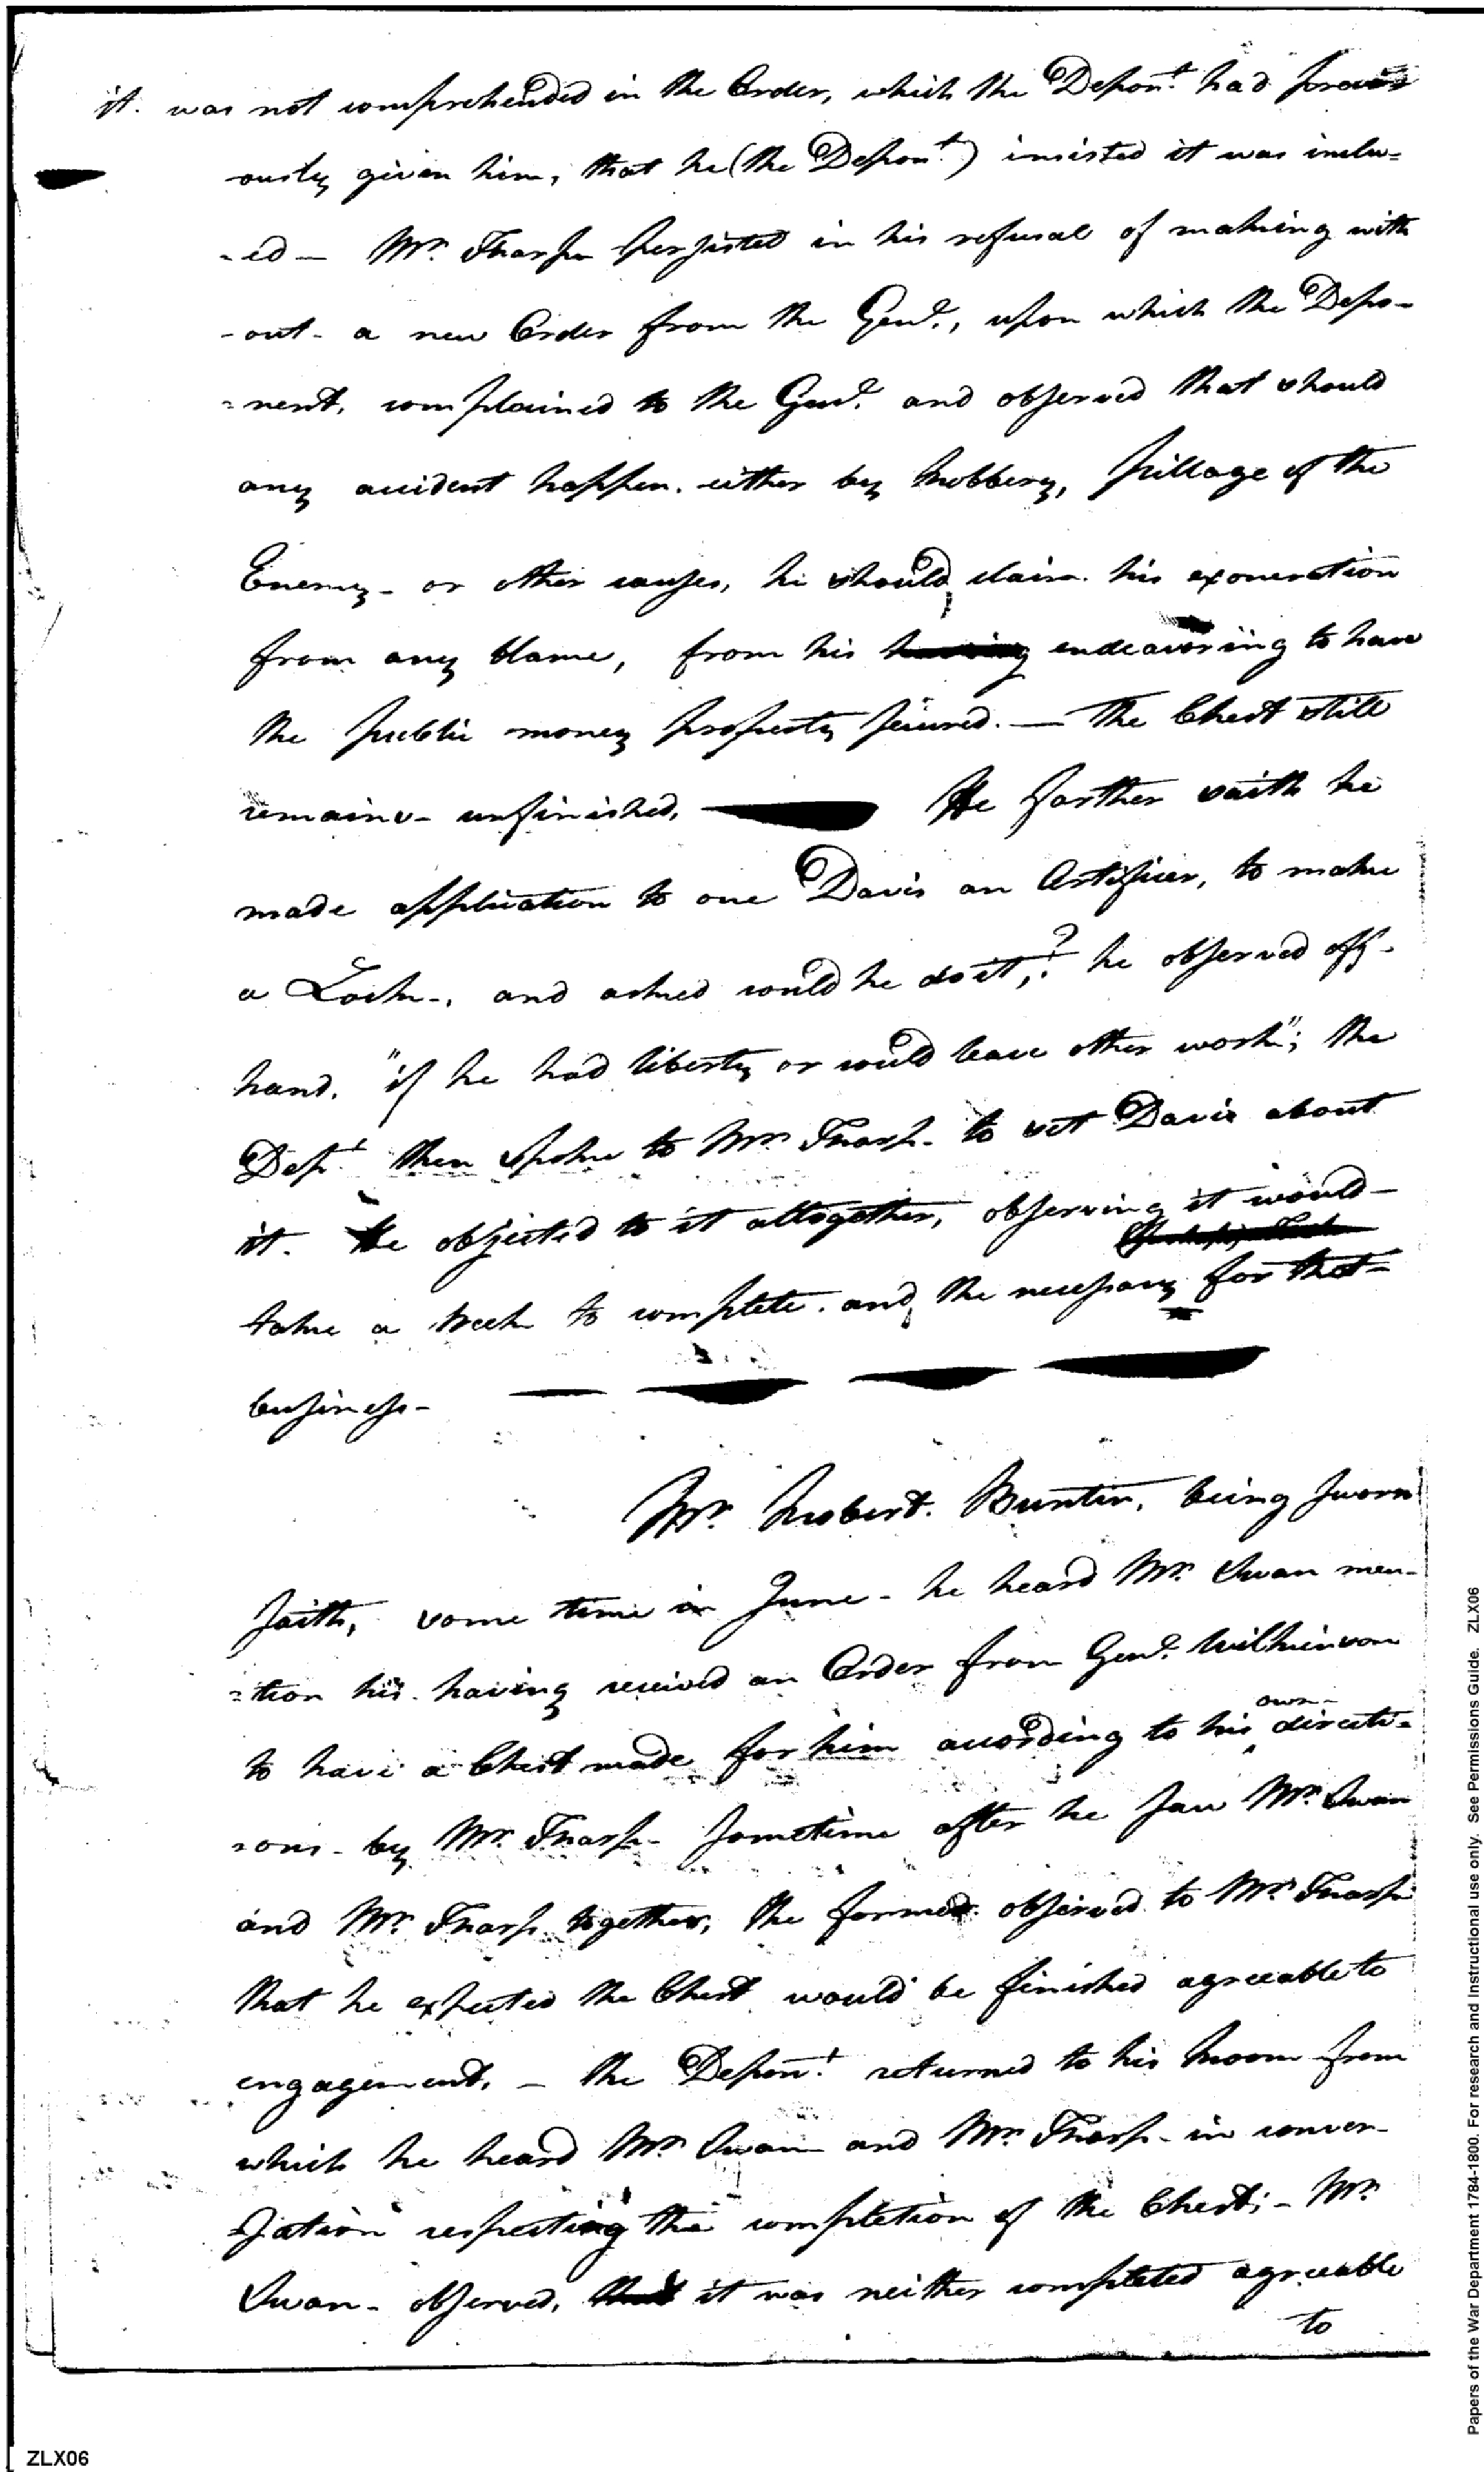 it. was not comprehended in the Order, which the Depont. had previ=
ously given him, that he (the Depont.) insisted it was inclu=
-ed — Mr. Tharp persisted in his refusal of making with
-out - a new Order from the Genl., upon which the Depo-
=nent, complained to the Genl. and observed that should
any accident happen. either by Robbery, pillage of the
Enemy - or other causes, he should, claim. his exoneration
from any blame, from his having endeavoring to have
the public money property secured. — The Chest still
remains - unfinished, He farther saith he
made application to one Davis an Artificer, to make
a Lock -, and asked could he do it,? he observed off-
hand, "if he had liberty or could leave other work"; the
Dept. then spoke to Mr. Tharp - to set Davis about
it. He objected to it altogether, observing it would -
take a Week to complete. and, the necessary for that =
business -
Mr. Robert. Buntin, being sworn
saith, some time in June - he heard Mr. Swan men-
=tion his having received an Order from Genl. Wilkinson
own -
to have a Chest made for him according to his directi-
=ons - by Mr. Tharp - sometime after he saw Mr. Swan
and Mr. Tharp together, the former observed to Mr. Tharp
that he expected the Chest would be finished agreeable to
engagement, - the Depont. returned to his Room from
which he heard Mr. Swan and Mr. Tharp - in conver-
-sation respecting the completion of the Chest; - Mr.
Swan - observed, that it was neither completed agreeable
to
ZLX06
Papers of the War Department 1784-1800. For research and Instructional use only. See Permissions Guide. ZLX06